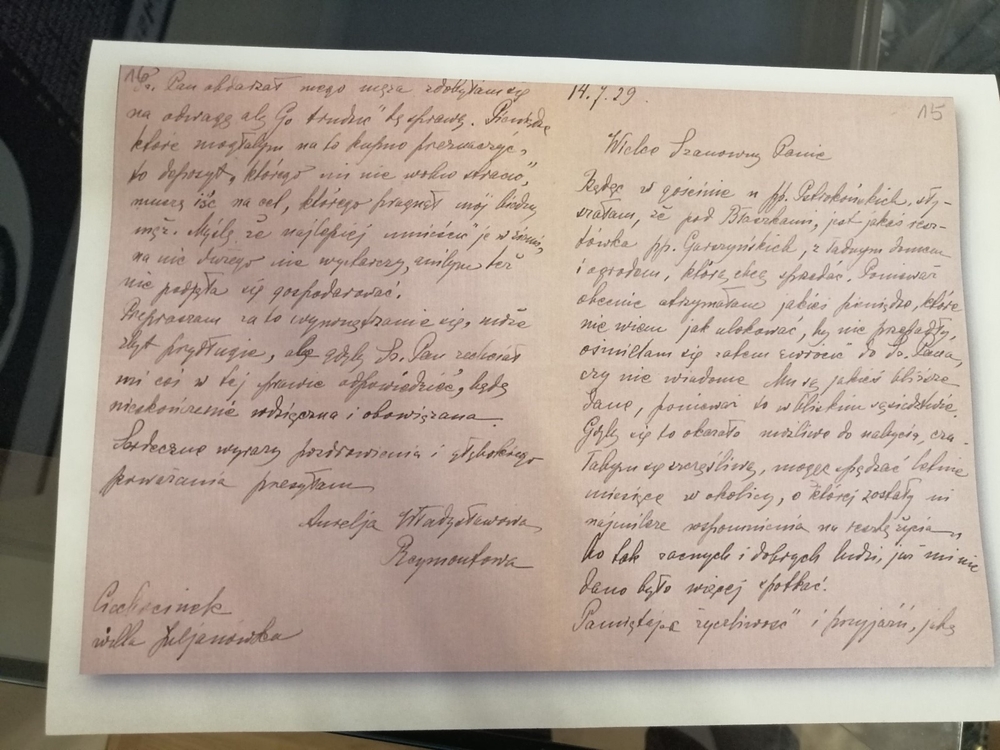 15
14.7.29.
Wielce Szanowny Panie
Będąc w gościnie u pp. Petrokońskich, sły-
szałam, że pod Błaszkami, jest jakaś resz-
tówka pp. Garczyńskich, z ładnym domem
i ogrodem, którą chcą sprzedać. Ponieważ
obecnie otrzymałam jakieś pieniądze, które
nie wiem jak ulokować, by nie przepadły,
ośmielam się zatem zwrócić do Sz. Pana,
czy nie wiadome Mu są jakieś bliższe
dane, ponieważ to w bliskim sąsiedztwie.
Gdyby się to okazało możliwe do nabycia, czu-
łabym się szczęśliwą, mogąc spędzać letnie
miesiące w okolicy, o której zostały mi
najmilsze wspomnienia na resztę życia,
bo tak zacnych i dobrych ludzi, już mi nie
dano było więcej spotkać.
Pamiętając "życzliwość" i przyjaźń, jaką
16
Sz. Pan obdarzał mego męża zdobyłam się
na odwagę aby Go trudzić tą sprawą. Pieniądze
które mogłabym na to kupno przeznaczyć,
to depozyt, którego mi nie wolno stracić,
muszą iść na cel, którego pragnął mój biedny
mąż. Myślę że najlepiej umieścić je w ziemi,
na nic dużego nie wystarczy, anibym też
nie podjęła się gospodarować.
Przepraszam za to wywnętrzanie się, może
zbyt przydługie, ale gdyby Sz. Pan zechciał
mi coś w tej sprawie odpowiedzieć, będę
nieskończenie wdzięczna i obowiązana.
Serdeczne wyrazy pozdrowienia i głębokiego
poważania przesyłam
Aurelja Władysławowa
Reymontowa
Ciechocinek
willa Juljanówka